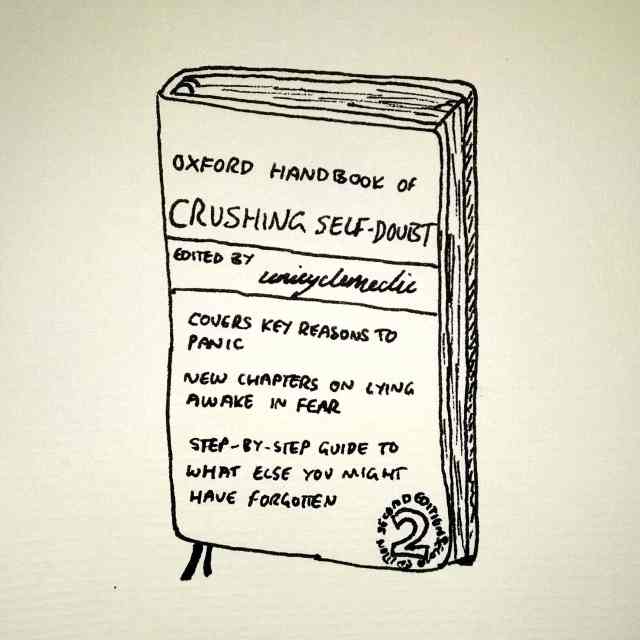 OXFORD HANDBOOK OF
CRUSHING SELF-DOUBT
EDITED BY unicyclemedic
COVERS KEY REASONS TO
PANIC
NEW CHAPTERS ON LYING
AWAKE IN FEAR
STEP-BY-STEP GUIDE TO
WHAT ELSE YOU MIGHT
HAVE FORGOTTEN
SECOND EDITION SECOND EDITION
2